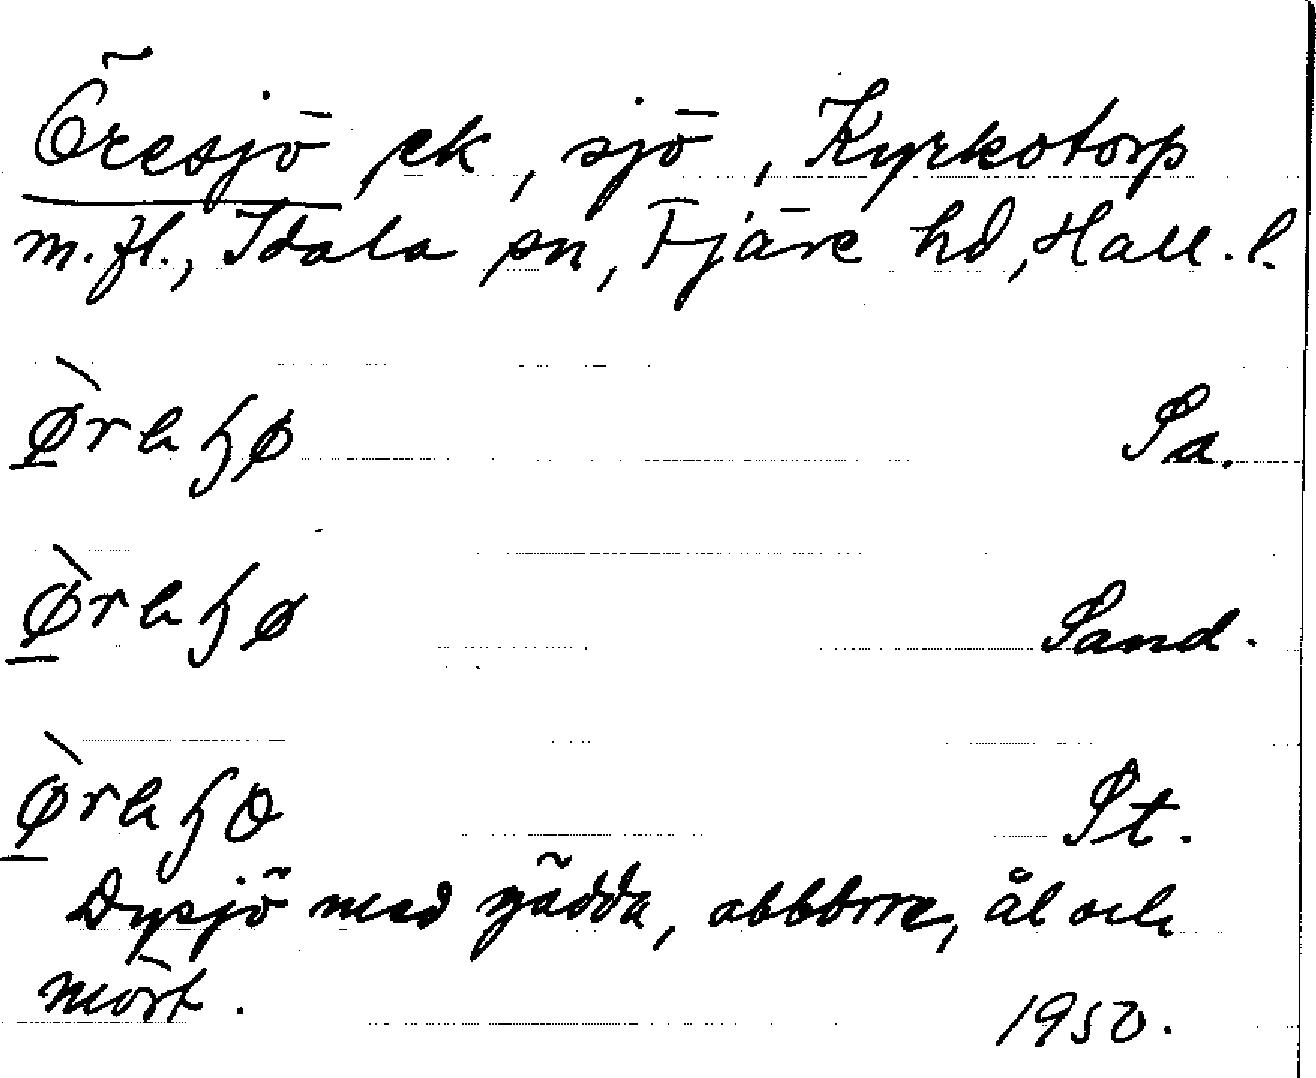 Öresjö ek, sjö, Kyrkotorp
m.fl., Idala sn, Fjäre hd, Hall. l.
Sa.
Sand.
St.
Dysjö med gädda, abborre, ål och
mört.
1950.